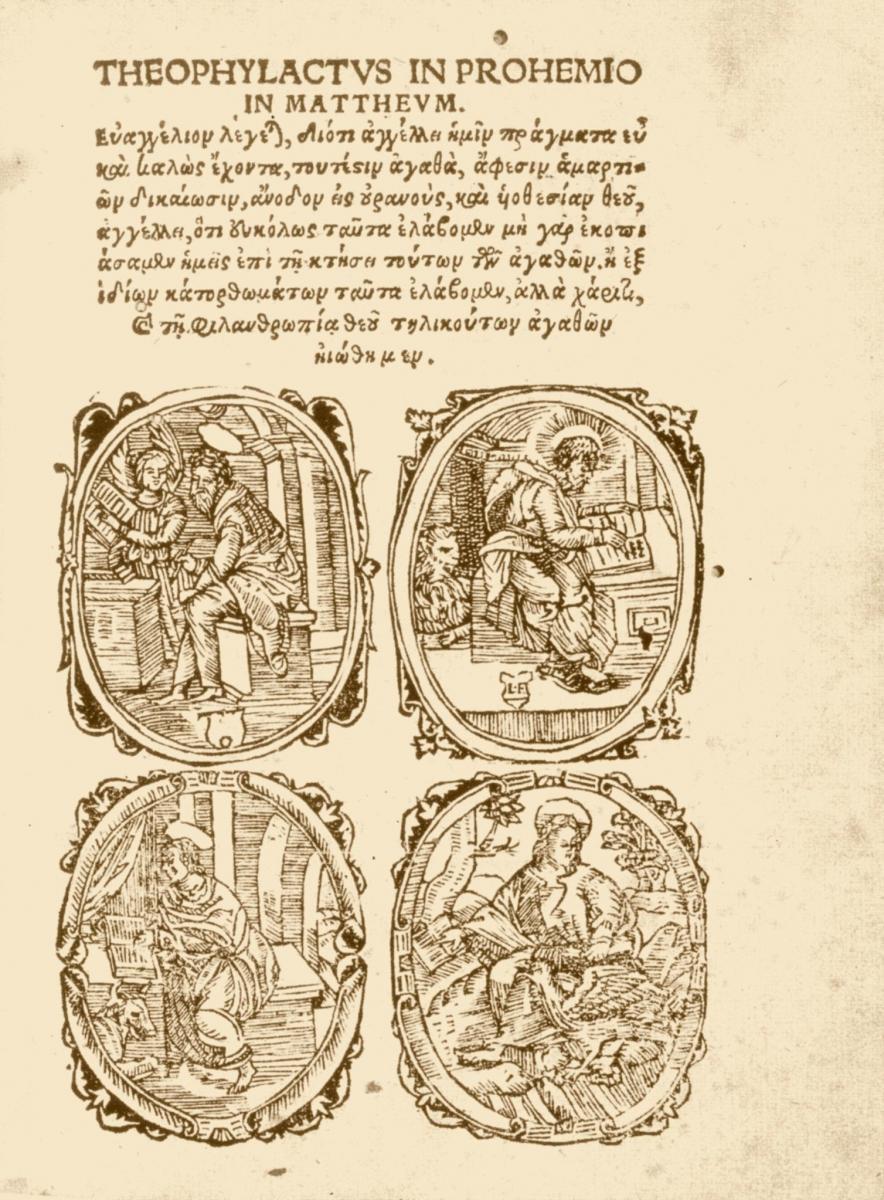 THEOPHYLACTVS IN PROHEMIO
IN MATTHEVM.
Εὐαγγέλιον λέγε), διότι ἀγγέλλει ἡμῖν πράγματα εὖ
καὶ καλῶς ἔχοντα, τουτέστιν ἀγαθὰ, ἄφεσιν ἁμαρτι-
ῶν δικαίωσιν, ἄνοδον εἰς οὐρανοὺς, καὶ ὑοθεσίαν θεοῦ,
ἀγγέλλει, ὅτι εὐκόλως ταῦτα ἐλάβομεν μὴ γὰρ ἐκοπι
άσαμεν ἡμεῖς ἐπὶ τῇ κτήσει τούτων τῶν ἀγαθῶν. ἢ ἐξ
ἰδίων κάτορθωμάτων ταῦτα ἐλάβομεν, ἀλλὰ χάριτι,
& τῇ φιλανθρωπίᾳ θεοῦ τηλικούτων ἀγαθῶν
ἠιώθημεν.
L F